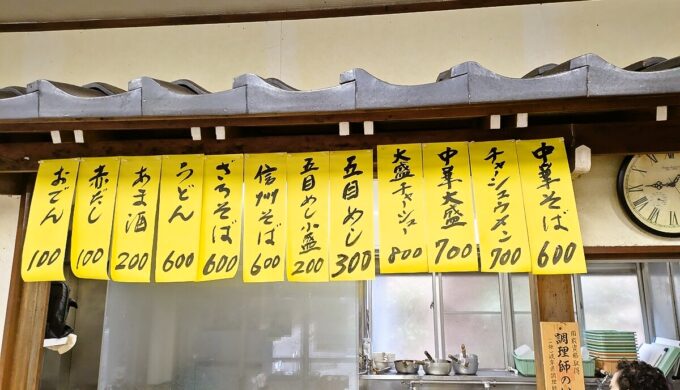 中華そば
600
チャーシュウメン
700
中華大盛
700
大盛チャーシュー
800
五目めし
300
五目めし小盛
200
信州そば
600
ざるそば
600
うどん
600
あま酒
200
赤だし
100
おでん
100
調理師の